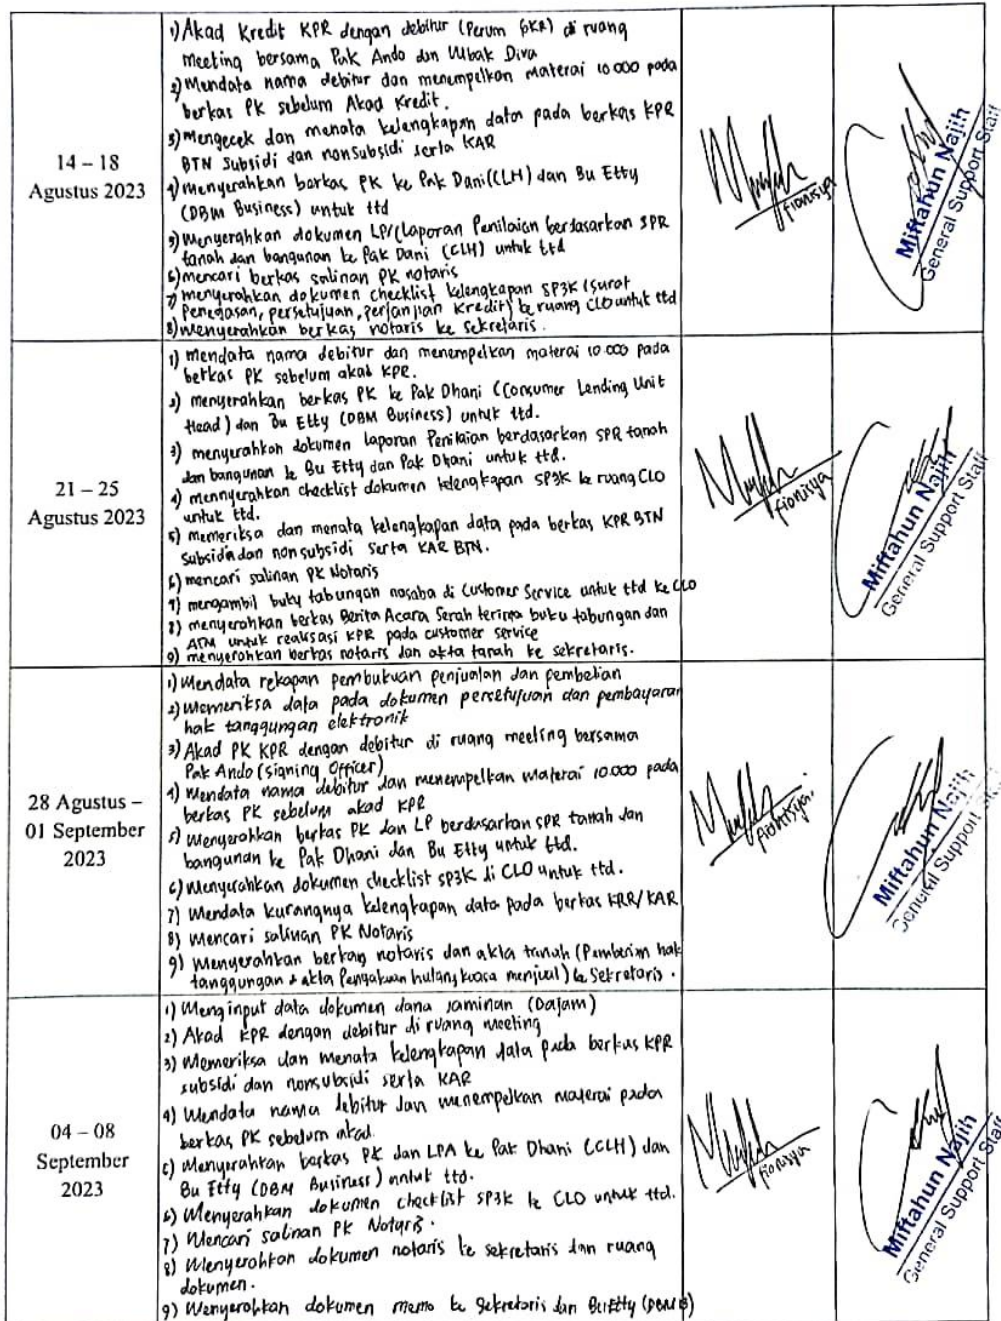 14 – 18
Agustus 2023
1) Akad Kredit KPR dengan debitur (Perum GKR) di ruang
meeting bersama Pak Ando dan Mbak Diva
2) Mendata nama debitur dan menempelkan materai 10 000 pada
berkas PK sebelum Akad Kredit.
3) Mengecek dan menata kelengkapan data pada berkas KPR
BTN Subsidi dan nonsubsidi serta KAR
4) menyerahkan berkas PK ke Pak Dani (CLH) dan Bu Etty
(DBM Business) untuk ttd
5) Menyerahkan dokumen LP/(Laporan Penilaian berdasarkan SPR
tanah dan bangunan ke Pak Dani (CLH) untuk ttd
6) mencari berkas salinan PK notaris
7) menyerahkan dokumen checklist kelengkapan SP3K (Surat
Penegasan, persetujuan, perjanjian kredit) ke ruang CLO untuk ttd
8) Menyerahkan berkas notaris ke sekretaris.
fionisya
Miftahun Najih
General Support Staff
21 – 25
Agustus 2023
1) Mendata nama debitur dan menempelkan materai 10 000 pada
berkas PK sebelum akad KPR.
2) menyerahkan berkas PK ke Pak Dhani (Consumer Lending Unit
Head) dan Bu Etty (DBM Business) untuk ttd.
3) menyerahkan dokumen laporan Penilaian berdasarkan SPR tanah
dan bangunan ke Bu Etty dan Pak Dhani untuk ttd.
4) mennyerahkan checklist dokumen kelengkapan SP3K ke ruang CLO
untuk ttd.
5) memeriksa dan menata kelengkapan data pada berkas KPR BTN
Subsidi dan nonsubsidi serta KAR BTN.
6) mencari salinan PK Notaris
7) mengambil buku tabungan nasaba di Customer Service untuk ttd ke CLO
8) menyerahkan berkas Berita Acara Serah terima buku tabungan dan
ATM untuk realisasi KPR pada customer service
9) menyerahkan berkas notaris dan akta tanah ke sekretaris.
fionisya
Miftahun Najih
General Support Staff
28 Agustus –
01 September
2023
1) Mendata rekapan pembukuan penjualan dan pembelian
2) Memeriksa data pada dokumen persetujuan dan pembayaran
hak tanggungan elektronik
3) Akad PK KPR dengan debitur di ruang meeting bersama
Pak Ando (Signing Officer)
4) Mendata nama debitur dan menempelkan Materai 10.000 pada
berkas PK sebelum akad KPR
5) Menyerahkan berkas PK dan LP berdasarkan SPR tanah dan
bangunan ke Pak Dhani dan Bu Etty untuk ttd.
6) Menyerahkan dokumen checklist SP3K di CLO untuk ttd.
7) Mendata kurangnya kelengkapan data pada berkas KPR/KAR
8) Mencari salinan PK Notaris
9) Menyerahkan berkas notaris dan akta tanah (Pemberian hak
tanggungan & akta Pengakuan hutang kuasa menjual) ke Sekretaris.
fionisya.
Miftahun Najih
General Support Staff
04 – 08
September
2023
1) Menginput data dokumen dana jaminan (Dajam)
2) Akad KPR dengan debitur di ruang meeting
3) Memeriksa dan menata kelengkapan data pada berkas KPR
subsidi dan nonsubsidi serta KAR
4) Mendata nama debitur dan menempelkan materai pada
berkas PK sebelum akad.
5) Menyerahkan berkas PK dan LPA ke Pak Dhani (CCLH) dan
Bu Etty (DBM Business) untuk ttd.
6) Menyerahkan dokumen checklist SP3K ke CLO untuk ttd.
7) Mencari salinan PK Notaris.
8) Menyerahkan dokumen notaris ke sekretaris dan ruang
dokumen.
9) Menyerahkan dokumen memo ke Sekretaris dan Bu Etty
fionisya
Miftahun Najih
General Support Staff